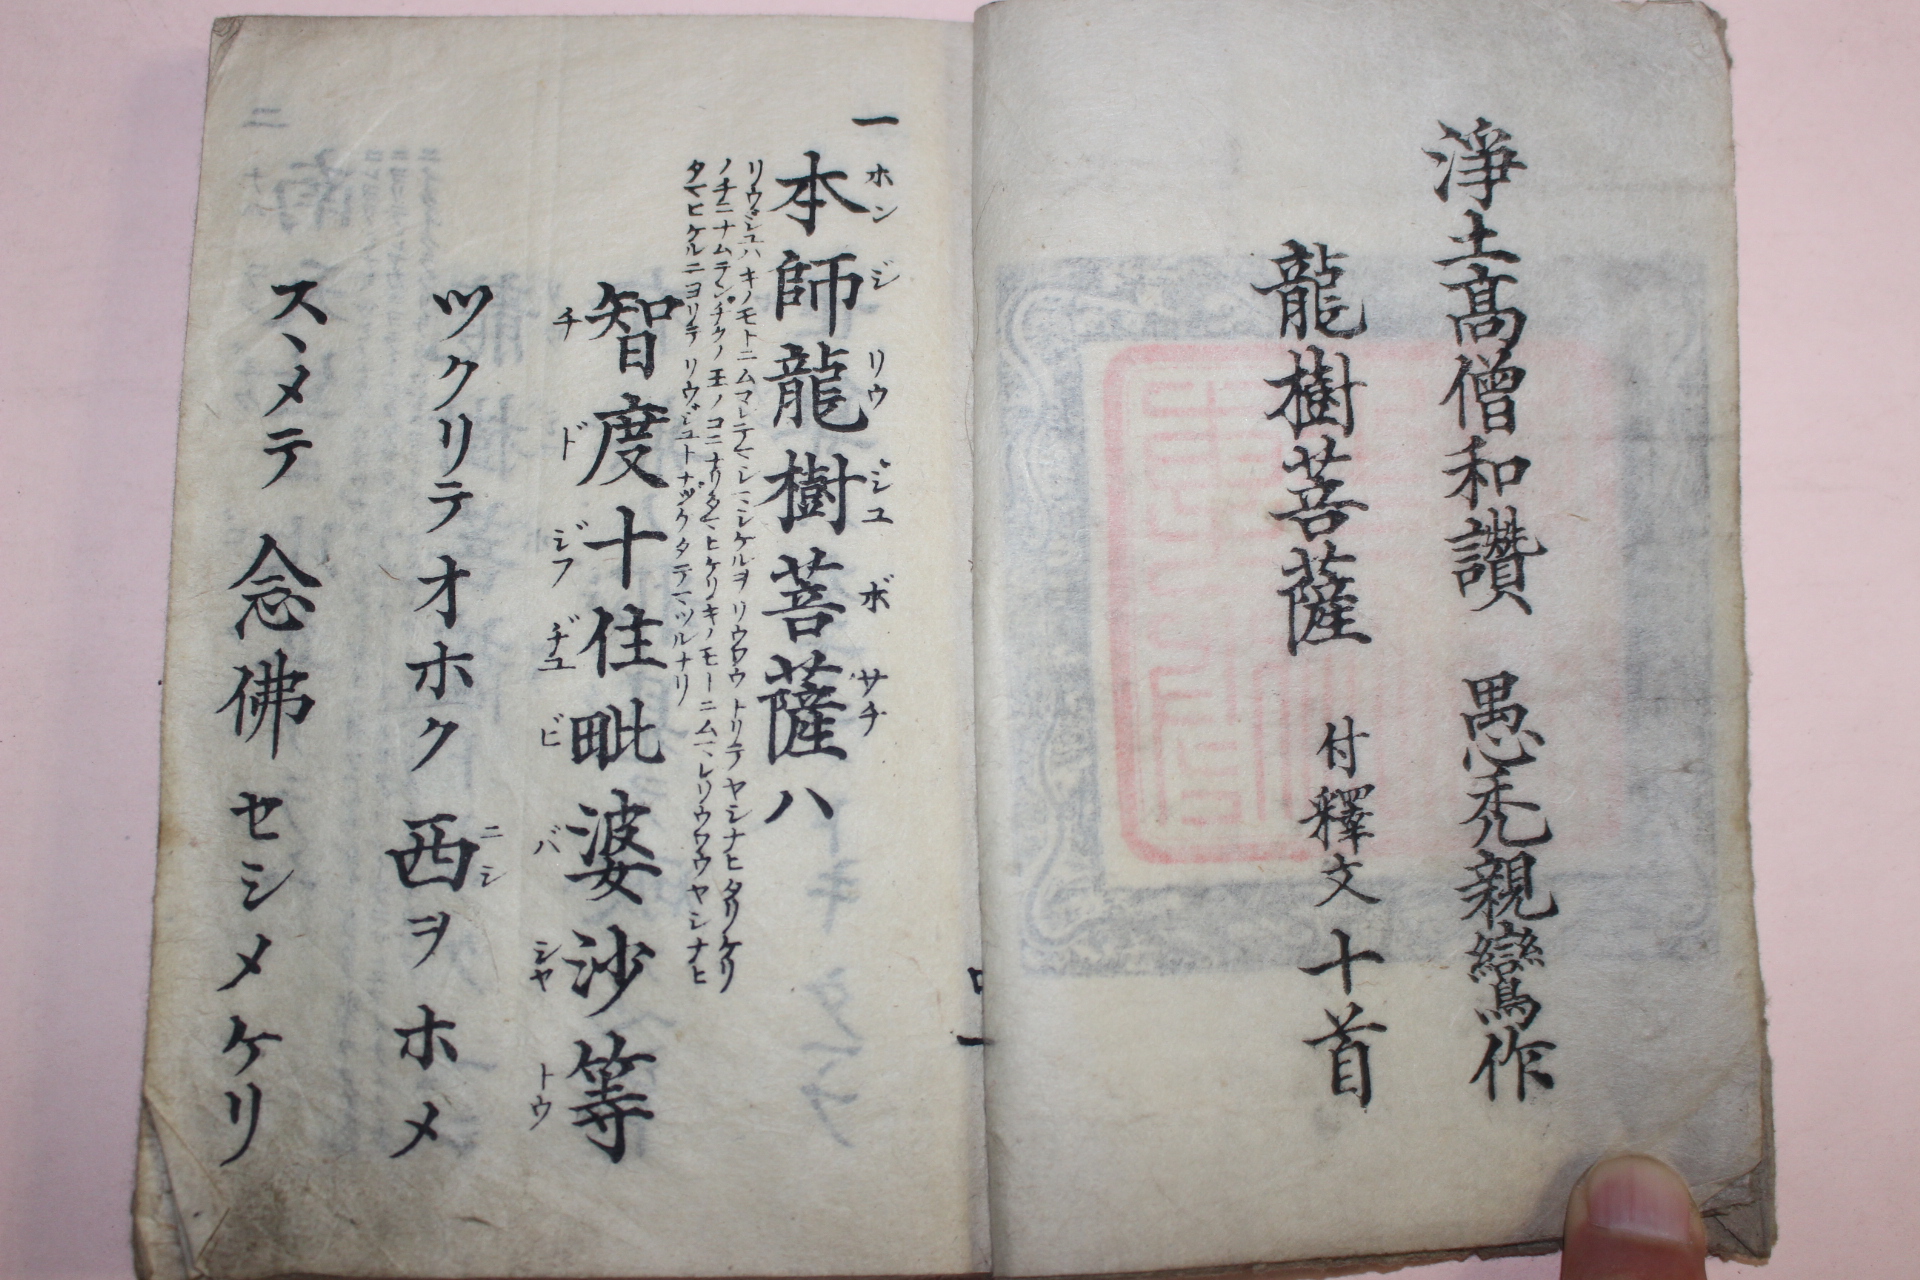 淨土髙僧和讚 愚禿親鸞作
龍樹菩薩 付釋文 十首
一
本師龍樹菩薩ハ
ホンジリウジユボサチ
リウジユハキノモトニムマレテマシマシケルヲリウワウトリテヤシナヒタリケリ
ノチニナムテンヂクノ王ノコニナリタマヒケリキノモトニムマレリウワウヤシナヒ
タマヒケルニヨリテリウジユトナヅクタテマツルナリ
智度十住毗婆沙等
チドジフヂユビバシヤトウ
ツクリテオホク西ヲホメ
ニシ
スヽメテ念佛セシメケリ